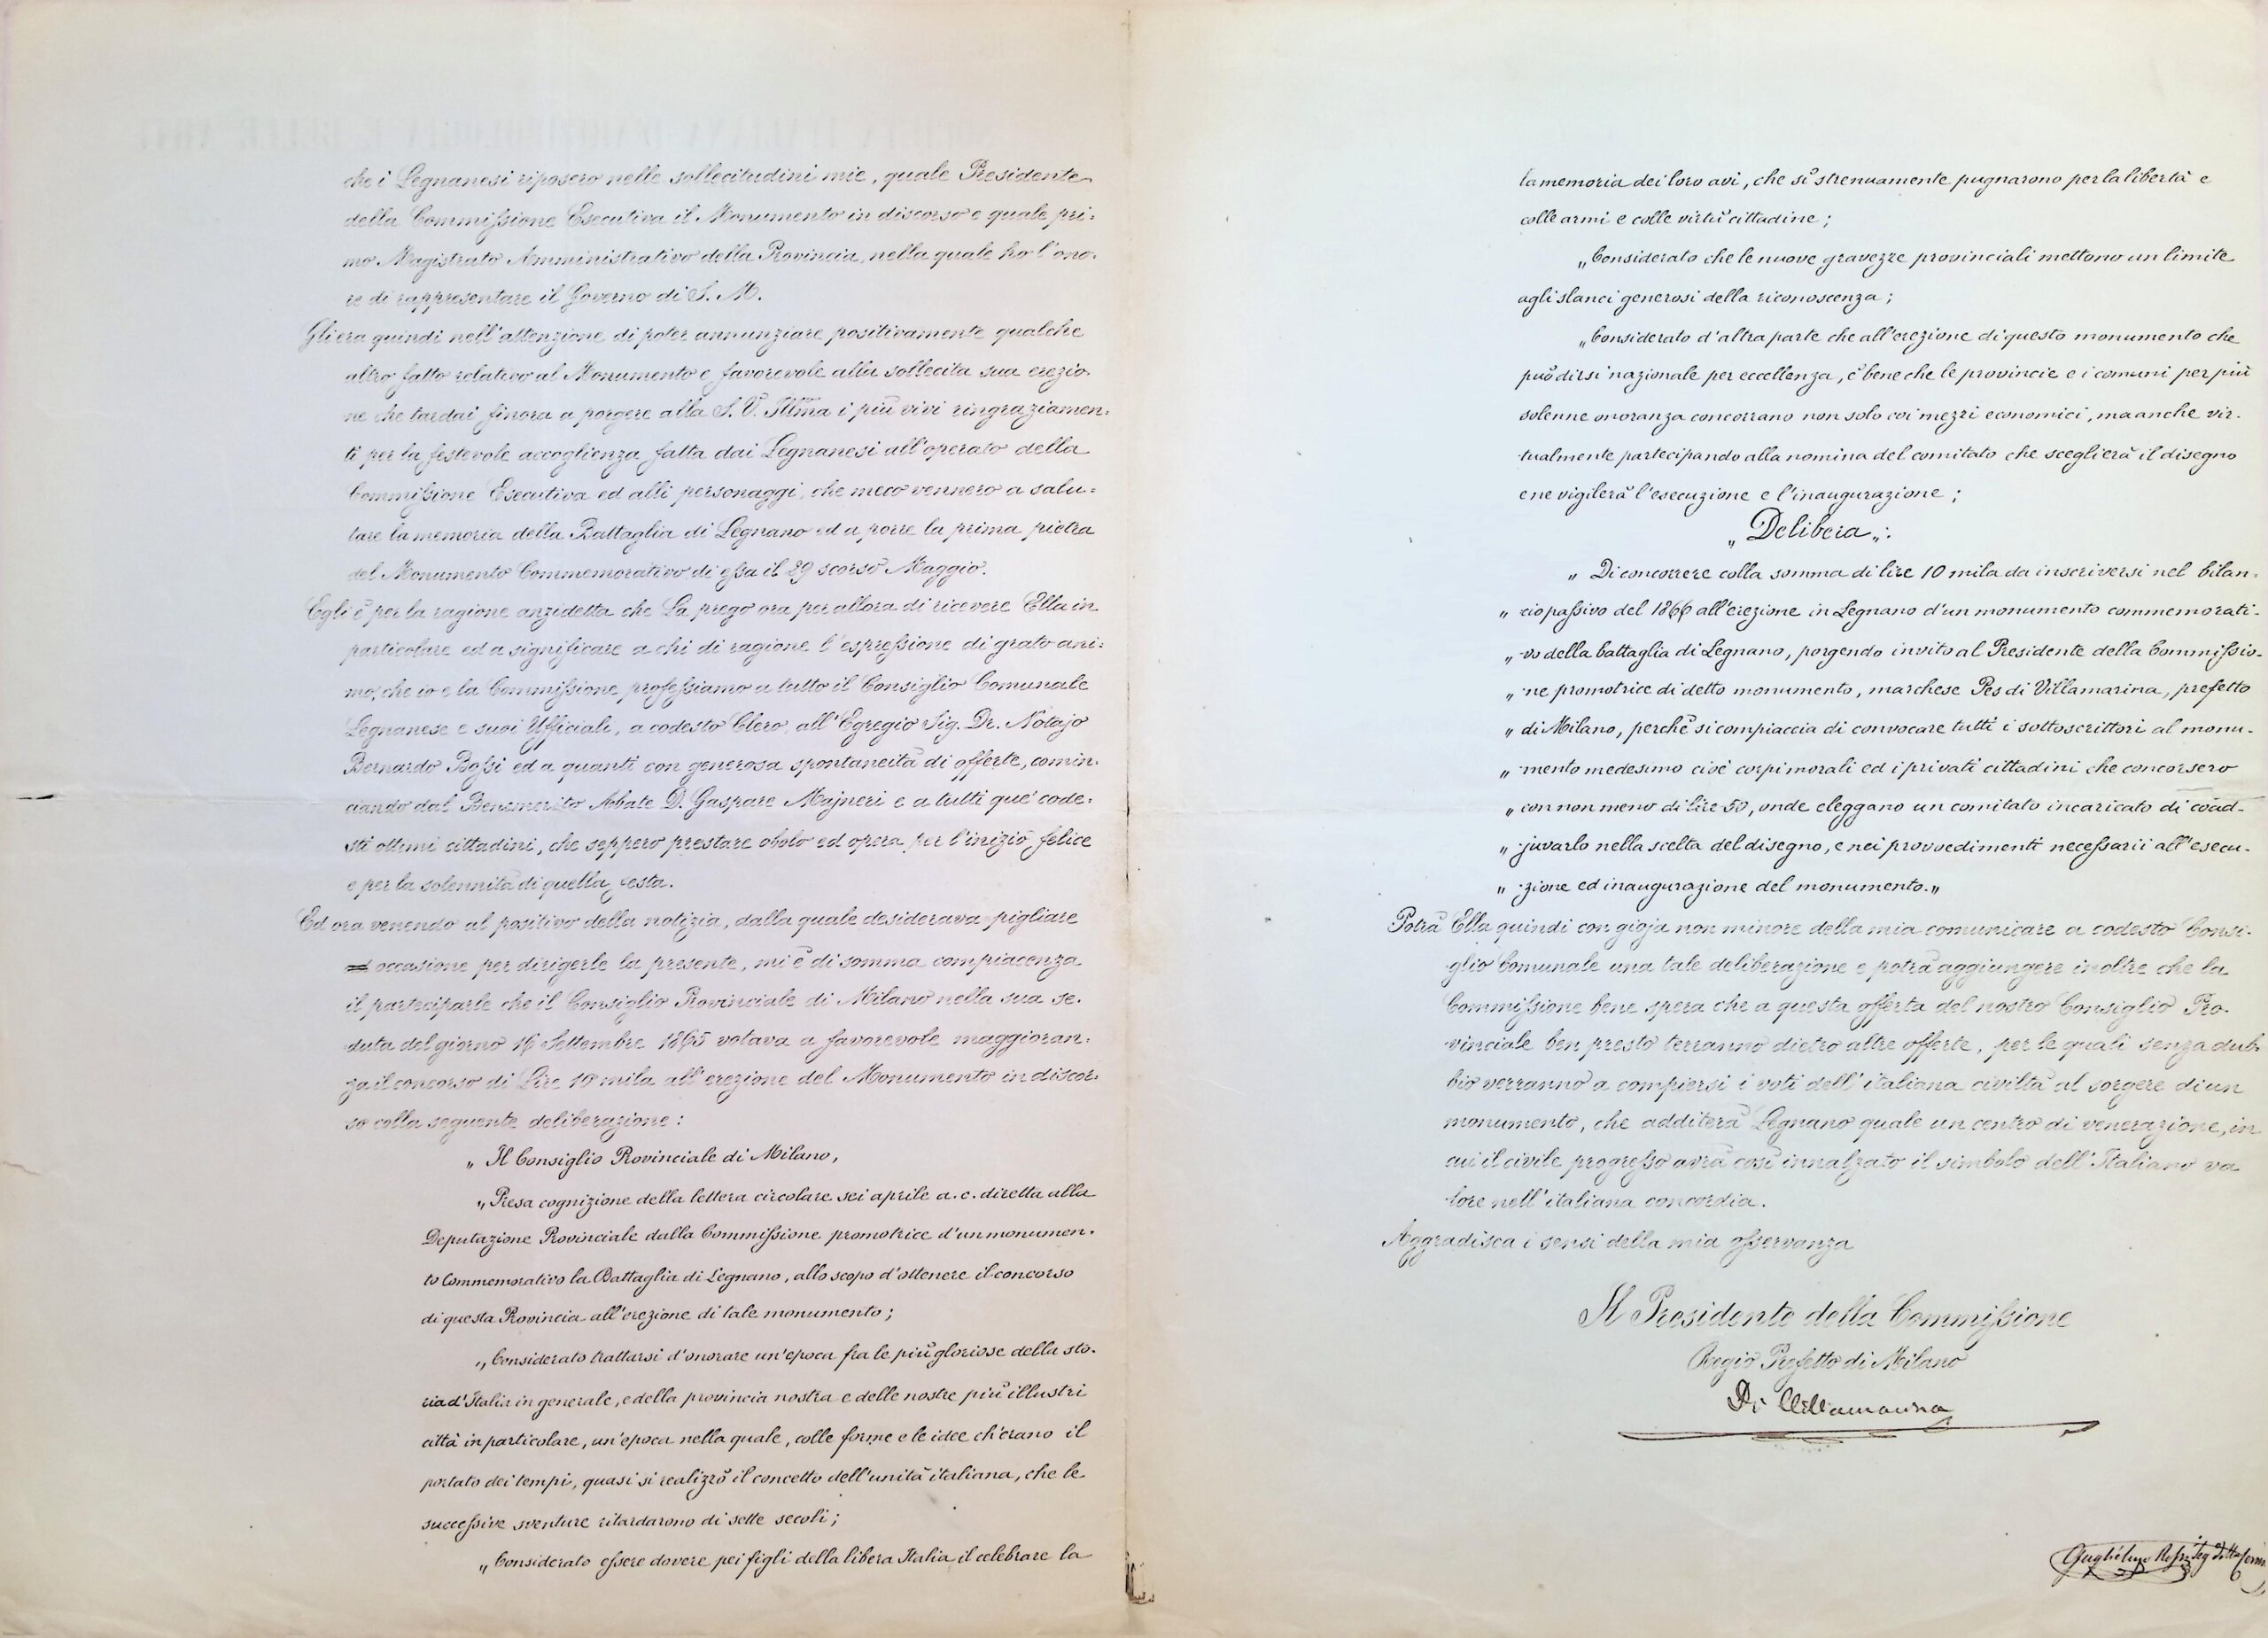 che i Legnanesi riposero nelle sollecitudini mie, quale Presidente
della Commissione Esecutiva il Monumento in discorso e quale pri=
mo Magistrato Amministrativo della Provincia, nella quale ho l'ono.
re di rappresentare il Governo di S. M.
Gli era quindi nell'attenzione di poter annunziare positivamente qualche
altro fatto relativo al Monumento e favorevole alla sollecita sua erezio.
ne che tardai finora a porgere alla S. V. Illma i più vivi ringraziamen=
ti per la festevole accoglienza fatta dai Legnanesi all'operato della
Commissione Esecutiva ed alli personaggi, che meco vennero a salu=
tare la memoria della Battaglia di Legnano ed a porre la prima pietra
del Monumento Commemorativo di essa il 29 scorso Maggio.
Egli è per la ragione anzidetta che La prego ora per allora di ricevere Ella in
particolare ed a significare a chi di ragione l'espressione di grato ani=
mo, che io e la Commissione professiamo a tutto il Consiglio Comunale
Legnanese e suoi Ufficiali, a codesto Clero, all'Egregio Sig. Dr. Notajo
Bernardo Bossi ed a quanti con generosa spontaneità di offerte, comin.
ciando dal Benemerito Abate D. Gaspare Majneri e a tutti que' code=
sti ottimi cittadini, che seppero prestare obolo ed opera per l'inizio felice
e per la solennità di quella festa.
Ed ora venendo al positivo della notizia, dalla quale desiderava pigliare
occasione per dirigerle la presente, mi è di somma compiacenza
il parteciparle che il Consiglio Provinciale di Milano nella sua se.
duta del giorno 16 Settembre 1865 votava a favorevole maggioran.
za il concorso di Lire 10 mila all'erezione del Monumento in discor.
so colla seguente deliberazione:
„ Il Consiglio Provinciale di Milano,
„ Presa cognizione della lettera circolare sei aprile a. c. diretta alla
Deputazione Provinciale dalla Commissione promotrice d'un monumen.
to Commemorativo la Battaglia di Legnano, allo scopo d'ottenere il concorso
di questa Provincia all'erezione di tale monumento;
„ Considerato trattarsi d'onorare un'epoca fra le più gloriose della sto.
ria d'Italia in generale, e della provincia nostra e delle nostre più illustri
città in particolare, un'epoca nella quale, colle forme e le idee ch'erano il
portato dei tempi, quasi si realizzò il concetto dell'unità italiana, che le
successive sventure ritardarono di sette secoli;
„ Considerato essere dovere pei figli della libera Italia il celebrare la
la memoria dei loro avi, che sì strenuamente pugnarono per la libertà e
colle armi e colle virtù cittadine;
„ Considerato che le nuove gravezze provinciali mettono un limite
agli slanci generosi della riconoscenza;
„ Considerato d'altra parte che all'erezione di questo monumento che
può dirsi nazionale per eccellenza, è bene che le provincie e i comuni per più
solenne onoranza concorrano non solo coi mezzi economici, ma anche vir.
tualmente partecipando alla nomina del comitato che sceglierà il disegno
e ne vigilerà l'esecuzione e l'inaugurazione;
„ Delibera „:
„ Di concorrere colla somma di lire 10 mila da inscriversi nel bilan.
„ cio passivo del 1866 all'erezione in Legnano d'un monumento commemorati.
„ vo della battaglia di Legnano, porgendo invito al Presidente della Commissio.
„ ne promotrice di detto monumento, marchese Pes di Villamarina, prefetto
„ di Milano, perchè si compiaccia di convocare tutti i sottoscrittori al monu.
„ mento medesimo cioè corpi morali ed i privati cittadini che concorsero
„ con non meno di lire 50, onde eleggano un comitato incaricato di coad-
„ juvarlo nella scelta del disegno, e nei provvedimenti necessarii all'esecu.
„ zione ed inaugurazione del monumento.„
Potrà Ella quindi con gioja non minore della mia comunicare a codesto Consi.
glio Comunale una tale deliberazione e potrà aggiungere inoltre che la
Commissione bene spera che a questa offerta del nostro Consiglio Pro.
vinciale ben presto terranno dietro altre offerte, per le quali senza dub.
bio verranno a compiersi i voti dell'italiana civiltà al sorgere di un
monumento, che additerà Legnano quale un centro di venerazione, in
cui il civile progresso avrà così innalzato il simbolo dell'Italiano va
lore nell'italiana concordia.
Aggradisca i sensi della mia osservanza
Il Presidente della Commissione
Regio Prefetto di Milano
Di Villamarina
Guglielmo Rossi Seg